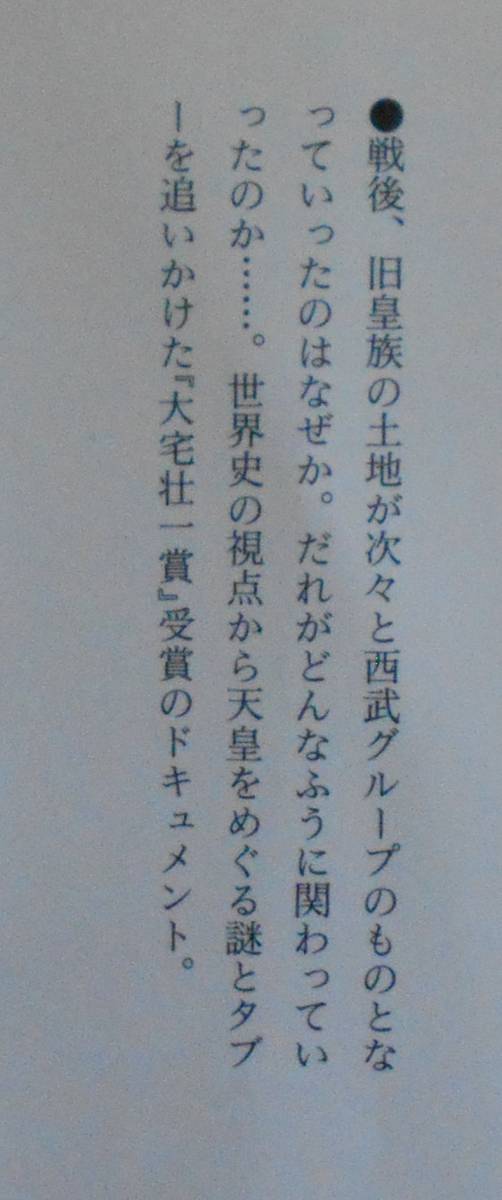 ●戦後、旧皇族の土地が次々と西武グループのものとな
っていったのはなぜか。だれがどんなふうに関わってい
ったのか……。世界史の視点から天皇をめぐる謎とタブ
ーを追いかけた『大宅壮一賞』受賞のドキュメント。